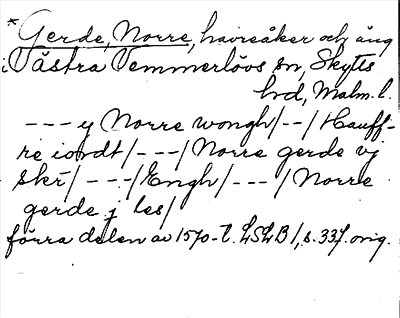 * Gerde, Norre, havreåker och äng
i Västra Vemmerlövs sn, Skytts
hd, Malm. l.
--- y Norre wongh/--/Hauff-
re iordt/---/Norre gerde vj
skr/---/Engh/---/Norre
gerde j les/
förra delen av 1570-t. LSLB 1, s. 337. orig.